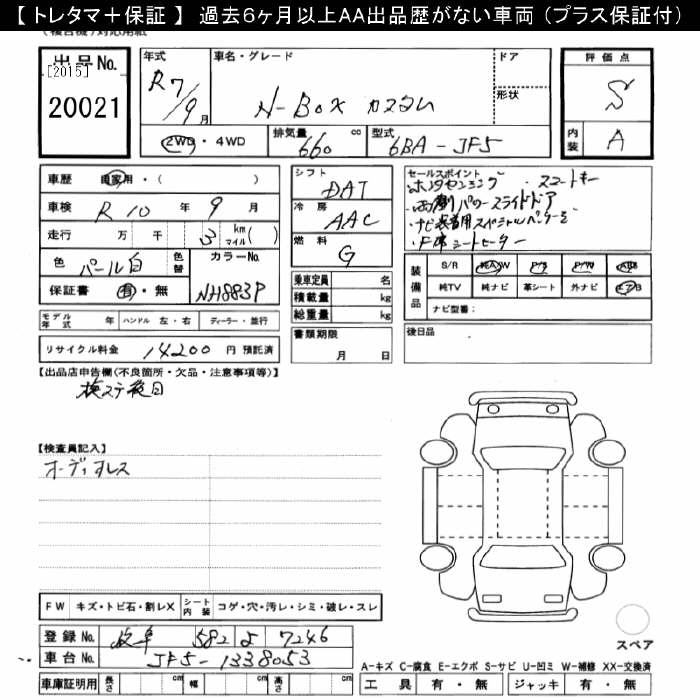 【 トレタマ＋保証 】 過去６ヶ月以上ＡＡ出品歴がない車両（プラス保証付）
出品No. [2015] 20021
年式 R7/9月
車名・グレード N-BOX カスタム
ドア
形状
評価点 S
内装 A
2WD ・ 4WD
排気量 660 cc
型式 6BA-JF5
車歴 自家用・（ ）
車検 R10 年 9 月
走行 万 千 3 km マイル( )
色 パール白 色替
カラーNo. NH883P
保証書 有・無
シフト DAT
冷房 AAC
燃料 G
乗車定員 名
積載量 kg
総重量 kg
セールスポイント
・ホンダセンシング ・スマートキー
・両側パワースライドドア
・ナビ装着用スペシャルパッケージ
・F席シートヒーター
装備品 S/R 純A/W P/S P/W ABS
純TV 純ナビ 革シート 外ナビ エアB
ナビ型番：
モデル年式 年 ハンドル 左・右 ディーラー・並行
リサイクル料金 14200 円 預託済
書類期限 月 日
後日品
【出品店申告欄(不良箇所・欠品・注意事項等)】
検ステ後日
【検査員記入】
オーディオレス
FW キズ・トビ石・割レX シート内装 コゲ・穴・汚レ・シミ・破レ・スレ
登録No. 岐阜 582 よ 7246
車台No. JF5-1338053
車庫証明用 長さ cm 幅 cm 高さ cm
スペア
A-キズ C-腐食 E-エクボ S-サビ U-凹ミ W-補修 XX-交換済
工具 有・無 ジャッキ 有・無